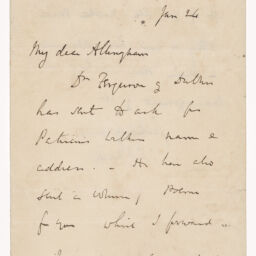 Jan 24
My dear Allingham
Dr Ferguson of Dublin
has sent to ask for
name &
address. - He has also
sent a volume of Poems
for you which I forward